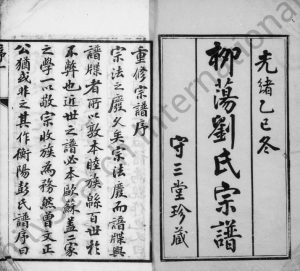 光緒乙巳冬
柳蕩劉氏宗譜
守三堂珍藏
重修宗譜序
宗法之廢久矣宗法廢而譜牒興
譜牒者所以敦本睦族緜百世於
不弊也近世之譜必本歐蘇蓋二家
之學以敬宗收族為務然曾文正
公猶或非之其作衡陽彭氏譜序曰
序一